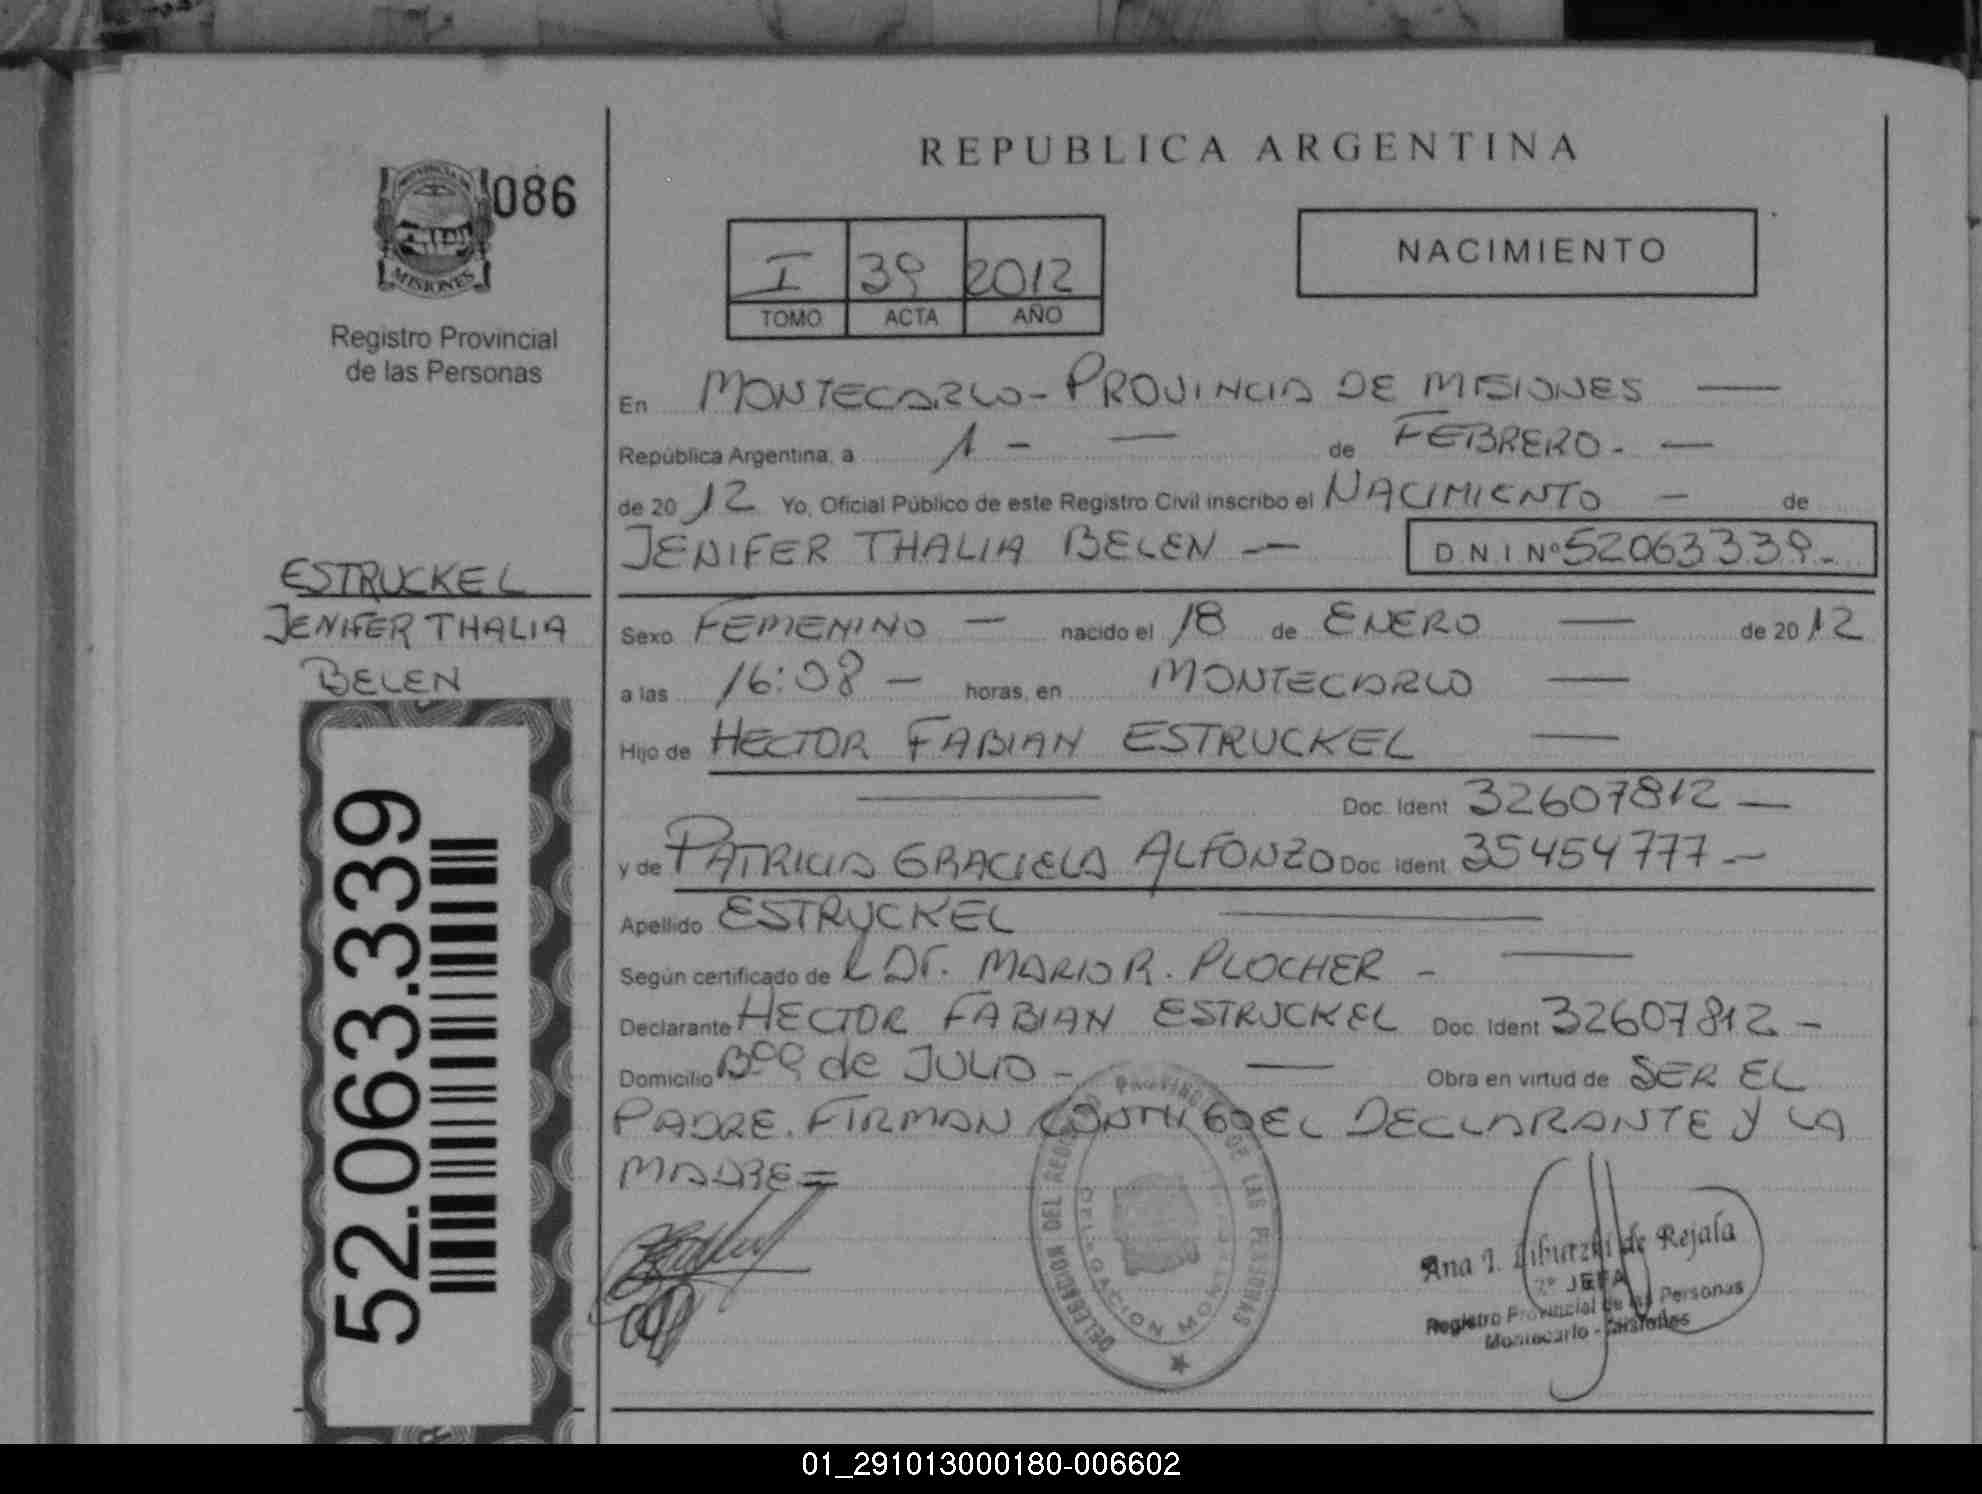 REPUBLICA ARGENTINA
086
PROVINCIA DE
MISIONES
Registro Provincial
de las Personas
I 39 2012
TOMO ACTA AÑO
NACIMIENTO
En MONTECARLO - PROVINCIA DE MISIONES —
República Argentina, a 1 - — de FEBRERO. —
de 2012 Yo, Oficial Público de este Registro Civil inscribo el NACIMIENTO — de
JENIFER THALIA BELEN — D.N.I Nº 52063339.-
ESTRUCKEL
JENIFER THALIA
BELEN
Sexo FEMENINO — nacido el 18 de ENERO — de 2012
a las 16:08 — horas, en MONTECARLO —
Hijo de HECTOR FABIAN ESTRUCKEL —
— Doc. Ident 32607812 —
y de PATRICIA GRACIELA ALFONZO Doc. Ident 35454777.—
Apellido ESTRUCKEL —
Según certificado de L Dr. MARIO R. PLOCHER - —
Declarante HECTOR FABIAN ESTRUCKEL Doc. Ident 32607812 -
Domicilio Bº 9 de JULIO - — Obra en virtud de SER EL
PADRE. FIRMAN CONMIGO EL DECLARANTE Y LA
MADRE =
52.063.339
DELEGACION DEL REGISTRO PROVINCIAL DE LAS PERSONAS
DELEGACION MONTECARLO
Ana I. de Rejala
2º JEFA
Registro Provincial de las Personas
Montecarlo - Misiones
01_291013000180-006602